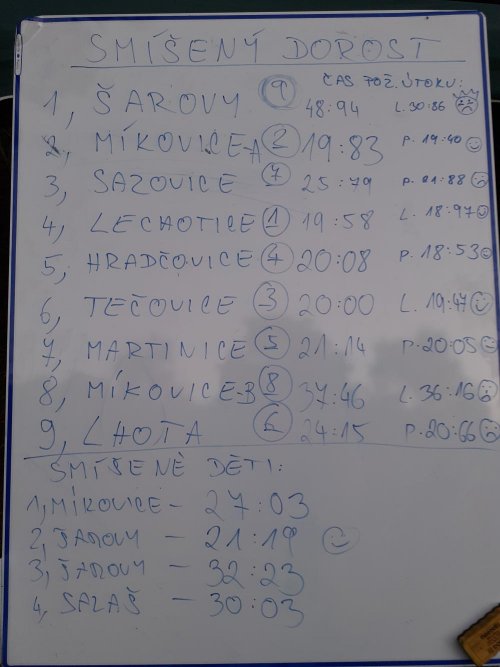 SMÍŠENÝ DOROST
ČAS POŽ. ÚTOKU:
1, ŠAROVY 9 48:94 L.30:86
2, MÍKOVICE-A 2 19:83 P.19:40
3, SAZOVICE 7 25:79 P.21:88
4, LECHOTICE 1 19:58 L.18:97
5, HRADČOVICE 4 20:08 P.18:53
6, TEČOVICE 3 20:00 L.19:47
7, MARTINICE 5 21:14 P.20:05
8, MÍKOVICE-B 8 37:46 L.36:16
9, LHOTA 6 24:15 P.20:66
SMÍŠENÉ DĚTI:
1, MÍKOVICE - 27:03
2, ŠAROVY - 21:19
3, ŠAROVY - 32:23
4, SALAŠ - 30:03